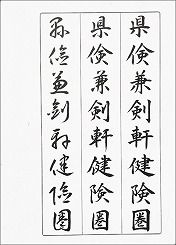 県倹兼剣軒健険圏
県倹兼剣軒健険圏
県倹兼剣軒健険圏